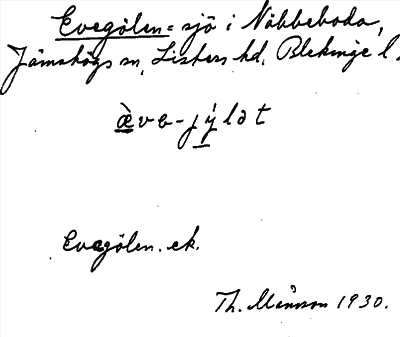 Evegölen = sjö i Näbbeboda,
Jämshögs sn, Listers hd, Blekinge l.
æ̀ve-jýlət
Evegölen. ek.
Th. Månsson 1930.